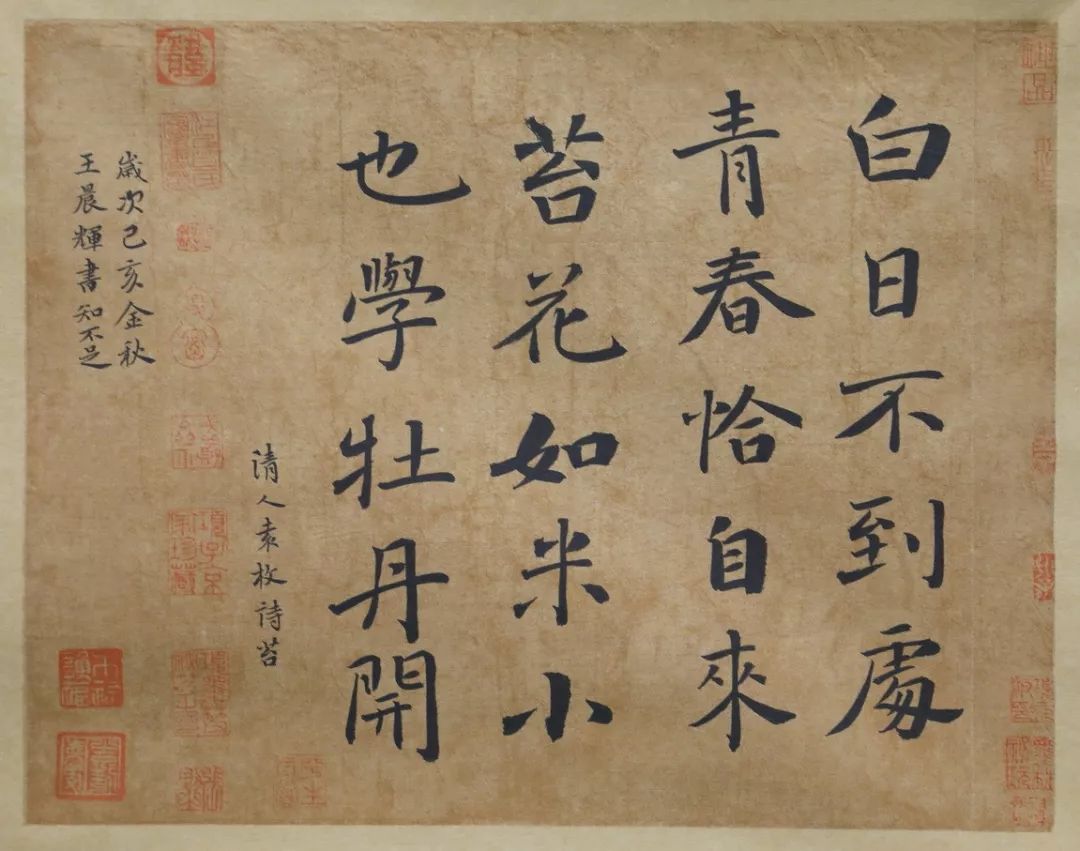 白日不到處
青春恰自來
苔花如米小
也學牡丹開
清人袁枚詩苔
嵗次己亥金秋
王晨輝書知不足